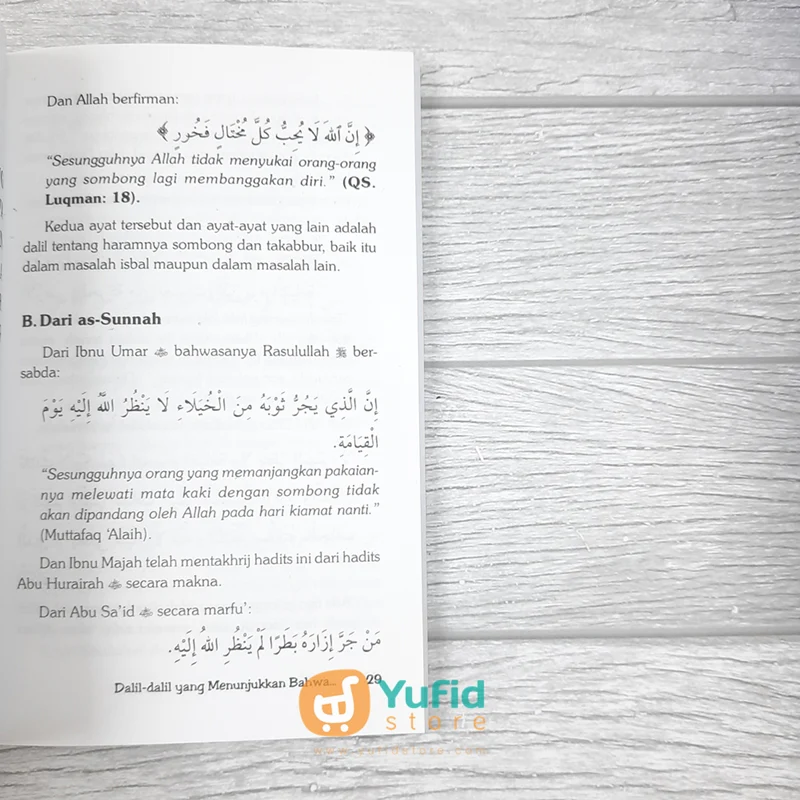 Dan Allah berfirman:
﴿ إِنَّ ٱللَّهَ لَا يُحِبُّ كُلَّ مُخْتَالٍ فَخُورٍ ﴾
"Sesungguhnya Allah tidak menyukai orang-orang
yang sombong lagi membanggakan diri." (QS.
Luqman: 18).
Kedua ayat tersebut dan ayat-ayat yang lain adalah
dalil tentang haramnya sombong dan takabbur, baik itu
dalam masalah isbal maupun dalam masalah lain.
B. Dari as-Sunnah
Dari Ibnu Umar bahwasanya Rasulullah ﷺ ber-
sabda:
إِنَّ الَّذِي يَجُرُّ ثَوْبَهُ مِنَ الْخُيَلَاءِ لَا يَنْظُرُ اللَّهُ إِلَيْهِ يَوْمَ
الْقِيَامَةِ.
"Sesungguhnya orang yang memanjangkan pakaian-
nya melewati mata kaki dengan sombong tidak
akan dipandang oleh Allah pada hari kiamat nanti."
(Muttafaq 'Alaih).
Dan Ibnu Majah telah mentakhrij hadits ini dari hadits
Abu Hurairah secara makna.
Dari Abu Sa'id secara marfu':
مَنْ جَرَّ إِزَارَهُ بَطَرًا لَمْ يَنْظُرِ اللهُ إِلَيْهِ.
Dalil-dalil yang Menunjukkan Bahwa... 29
Yufid
store
www.yufidstore.com